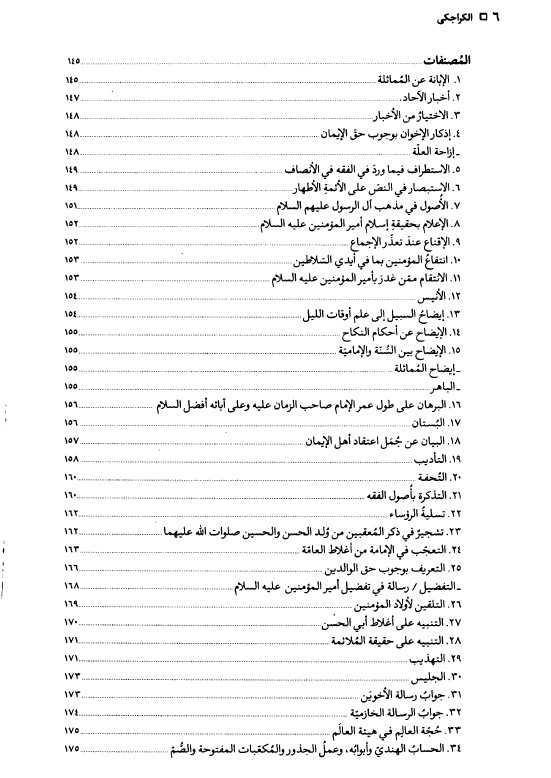 ٦ □ الكراجكي
المُصنفات ١٤٥
١. الإبانة عن المُماثلة ١٤٥
٢. أخبار الآحاد. ١٤٧
٣. الاختيارُ من الأخبار ١٤٨
٤. إذكار الإخوان بوجوب حقّ الإيمان ١٤٨
ـ إزاحة العلّة ١٤٨
٥. الاستطراف فيما وردَ في الفقه في الأنصاف ١٤٩
٦. الاستبصار في النصّ على الأئمةِ الأطهار ١٤٩
٧. الأُصول في مذهب آل الرسول عليهم السلام ١٥١
٨. الإعلام بحقيقةِ إسلام أمير المؤمنين عليه السلام ١٥٢
٩. الإقناع عندَ تعذّر الإجماع ١٥٢
١٠. انتفاعُ المؤمنين بما في أيدي السّلاطين ١٥٣
١١. الانتقام ممّن غدرَ بأمير المؤمنين عليه السلام ١٥٣
١٢. الأنيس ١٥٤
١٣. إيضاحُ السبيل إلى علم أوقات الليل ١٥٤
١٤. الإيضاح عن أحكام النكاح ١٥٥
١٥. الإيضاح بين السُنّة والإماميّة ١٥٥
ـ إيضاح المُماثلة ١٥٥
ـ الباهر ١٥٥
١٦. البرهان على طول عمر الإمام صاحب الزمان عليه وعلى آبائه أفضل السلام ١٥٦
١٧. البُستان ١٥٦
١٨. البيان عن جُمَل اعتقاد أهل الإيمان ١٥٧
١٩. التأديب ١٥٨
٢٠. التُحفـة ١٦٠
٢١. التذكرة بأُصول الفقه ١٦٠
٢٢. تسليةُ الرؤساء ١٦٢
٢٣. تشجيرٌ في ذكر المُعقبين من وُلد الحسن والحسين صلوات الله عليهما ١٦٢
٢٤. التعجّب في الإمامة من أغلاط العامّة ١٦٣
٢٥. التعريف بوجوب حق الوالدين ١٦٦
ـ التفضيل / رسالة في تفضيل أمير المؤمنين عليه السلام ١٦٨
٢٦. التلقين لأولاد المؤمنين ١٦٩
٢٧. التنبيه على أغلاط أبي الحسن ١٧٠
٢٨. التنبيه على حقيقة المُلائمة ١٧١
٢٩. التهذيب ١٧١
٣٠. الجليس ١٧٣
٣١. جوابُ رسالة الأخويْن ١٧٣
٣٢. جوابُ الرسالة الخازميّة ١٧٤
٣٣. حُجّة العالِم في هيئة العالَم ١٧٥
٣٤. الحسابُ الهنديّ وأبوابُه، وعملُ الجذور والمُكعّبات المفتوحة والصُّمّ ١٧٥